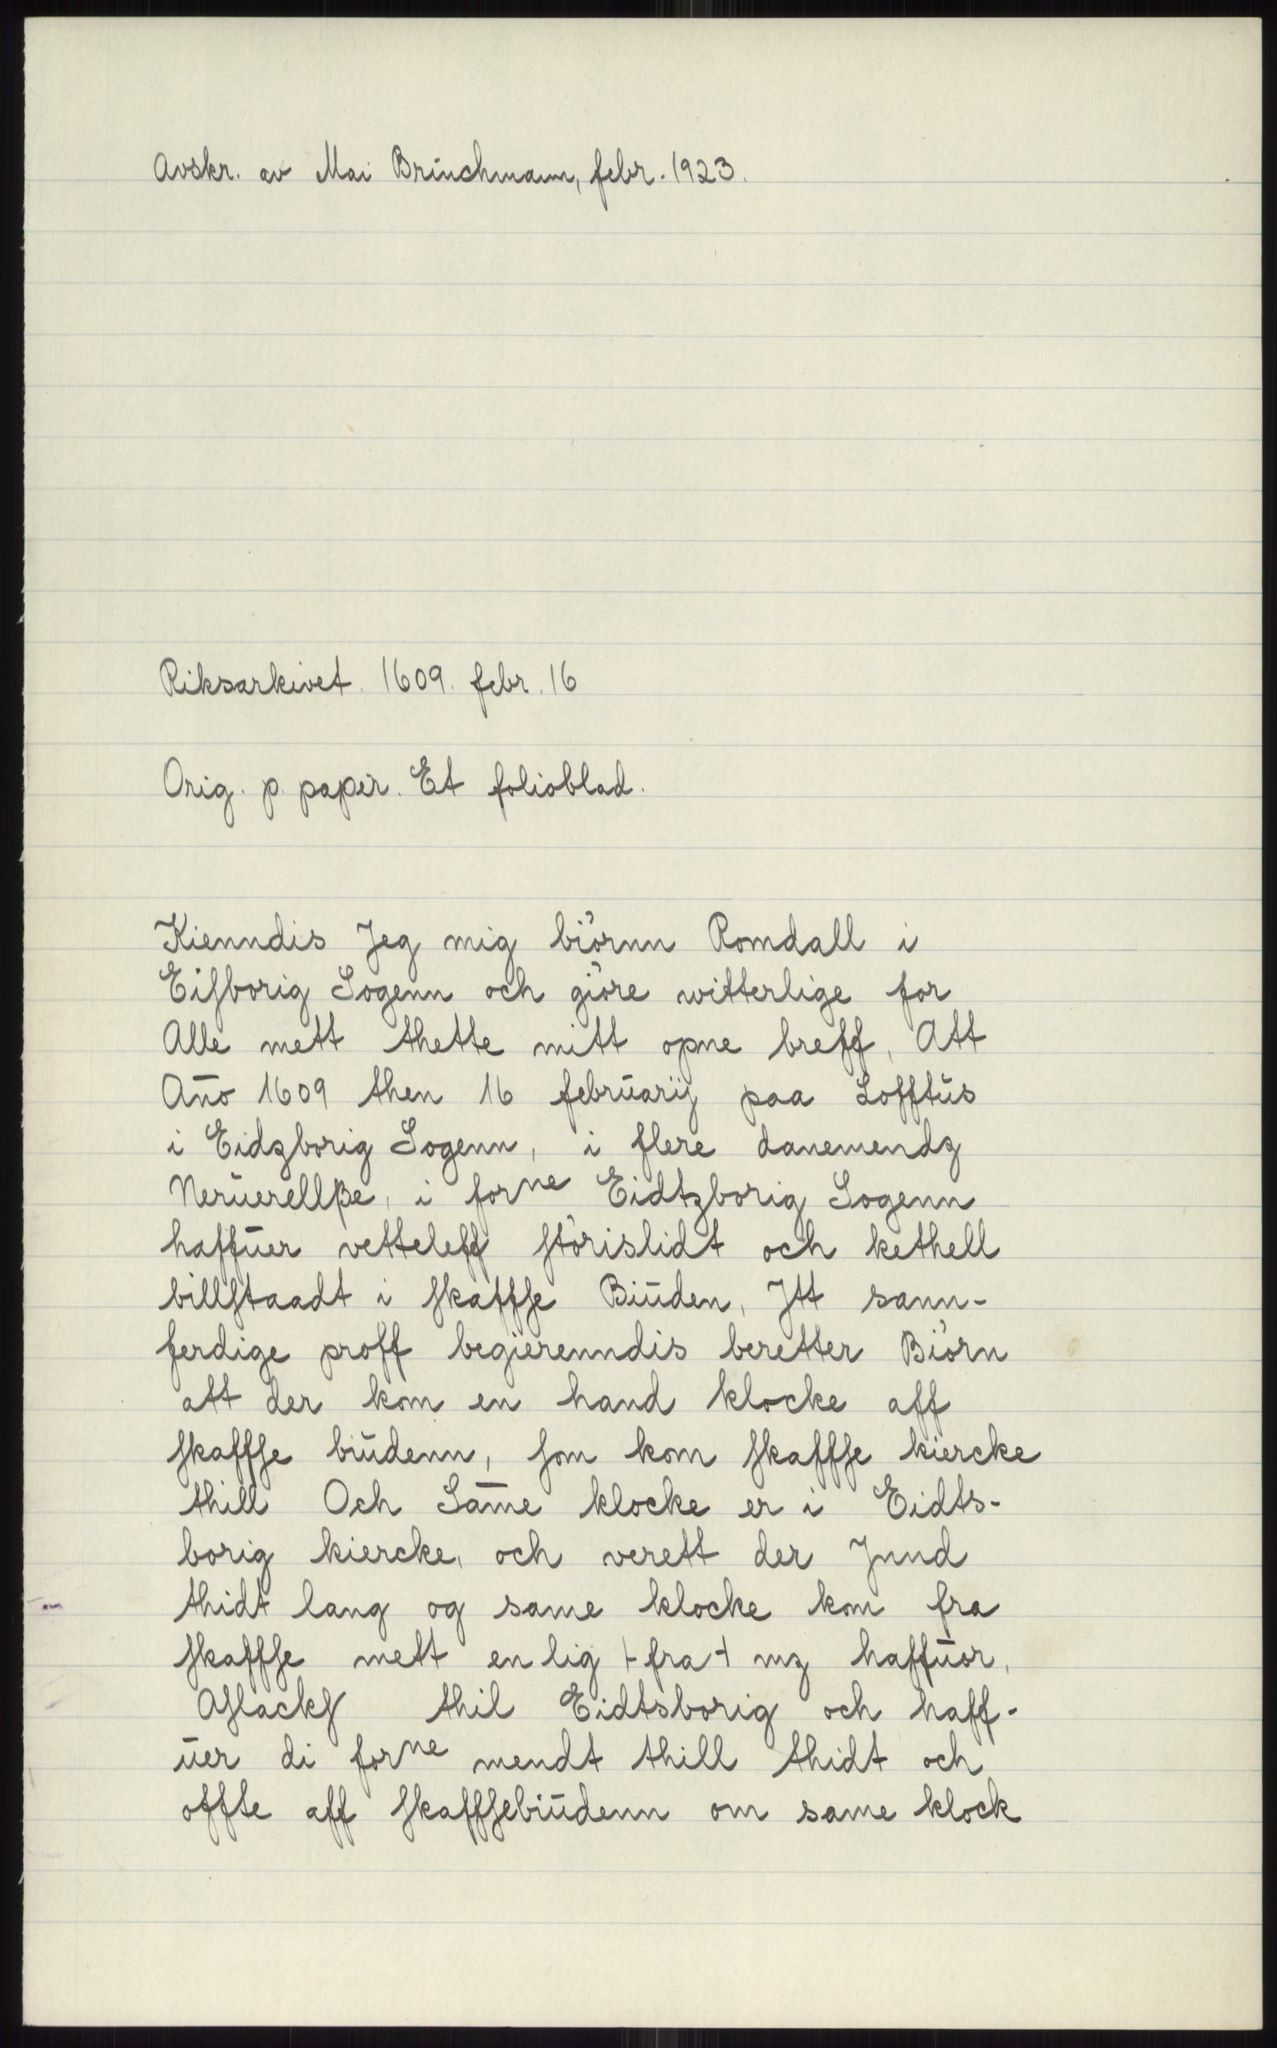 Avskr. av Mai Brinchmann, febr. 1923.
Riksarkivet. 1609. febr. 16
Orig. p. papir. Et folioblad.
Kienndis Jeg mig biörnn Romdall i
Eiſborig Sogenn och giöre witterlige for
Alle mett thette mitt opne breff, Att
Año 1609 then 16 februarij paa Lofftus
i Eidzborig Sogenn, i flere danemendz
Neruerellße, i forne Eidtzborig Sogenn
haffuer vetteleff ſtörislidt och kethell
billſtaadt i ſkaffſe Biuden, Jtt sann-
ferdige proff begierenndis beretter Biörn
att der kom en hand klocke aff
ſkaffſe biudenn, ſom kom ſkaffſe kiercke
thill Och Sāme klocke er i Eidts-
borig kiercke, och verett der Jnnd
thidt lang og same klocke kom fra
ſkaffſe mett en lig ⊢fra⊣ mz haffuor,
Aſlackſ thil Eidtsborig och haff-
uer di forne mendt thill thidt och
offte aff ſkaffſebiudenn om same klock